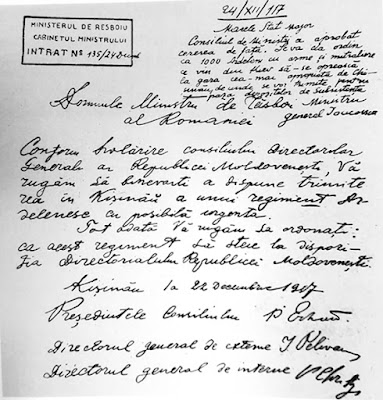 24/XII/917
MINISTERUL DE RESBOIU
CABINETUL MINISTRULUI
INTRAT No 135/24 Dec
Marele Stat Major
Consiliul de Miniștri a aprobat
cererea de față. Se va da ordin
ca 1000 Ardeleni cu arme și mutrațiune
ce vin din Kiev să se oprească
la gara cea mai apropiată de Chi-
șinău de unde se vor trimite pentru
paza depozitelor de Subsistență
Ministru
general Iancovescu
Domnule Ministru de Resboiu
al României
Conform hotărîre consiliului Directorilor
Generali ai Republicei Moldovenești, Vă
rugăm să binevoiți a dispune trimite
rea în Kișinău a unui regiment Ar-
delenesc cu posibilă urgența.
Tot odată Vă rugăm să ordonați:
ca acest regiment să steie la dispozi-
ția Directoratului Republicei Moldovenești.
Kișinău la 22 Decembrie 1917
Președintele Consiliului P Erhan
Directorul general de externe I Pelivan
Directorul general de interne